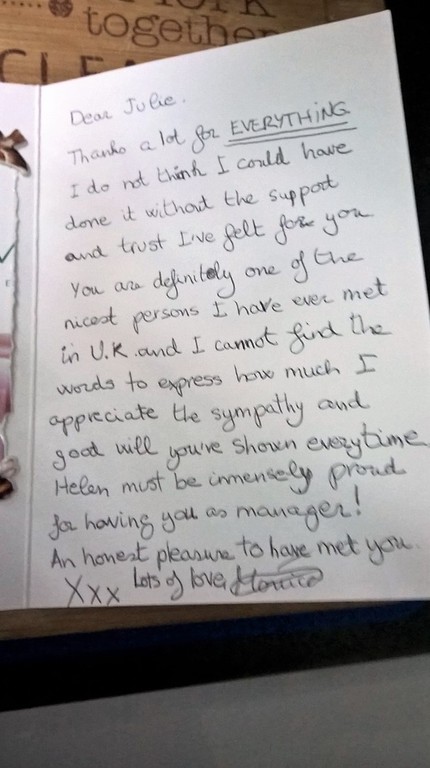 together
CLEA
Dear Julie.
Thanks a lot for EVERYTHING
I do not think I could have
done it without the support
and trust I've felt for you
You are definitely one of the
nicest persons I have ever met
in U.K. and I cannot find the
words to express how much I
appreciate the sympathy and
good will you've shown everytime
Helen must be inmensely proud
for having you as manager!
An honest pleasure to have met you.
Xxx Lots of love,